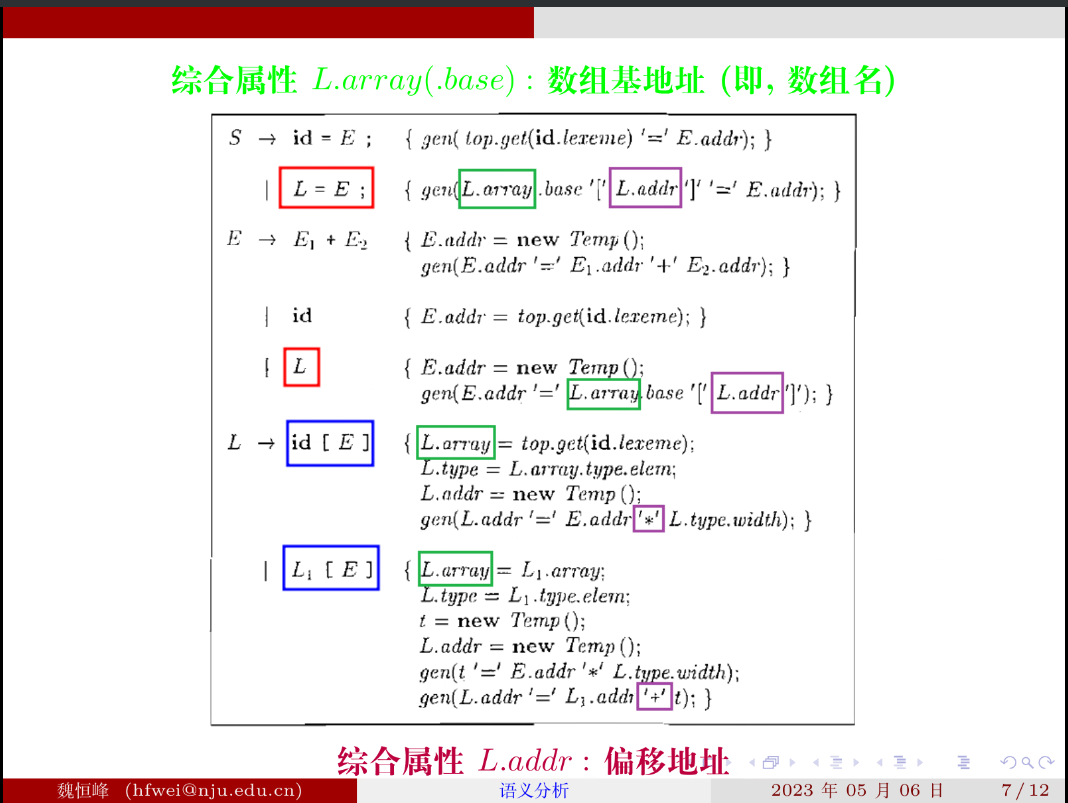 综合属性 L.array(.base) : 数组基地址 (即, 数组名)
S → id = E ; { gen( top.get(id.lexeme) '=' E.addr); }
| L = E ; { gen(L.array.base '[' L.addr ']' '=' E.addr); }
E → E₁ + E₂ { E.addr = new Temp();
gen(E.addr '=' E₁.addr '+' E₂.addr); }
| id { E.addr = top.get(id.lexeme); }
| L { E.addr = new Temp();
gen(E.addr '=' L.array.base '[' L.addr ']'); }
L → id [ E ] { L.array = top.get(id.lexeme);
L.type = L.array.type.elem;
L.addr = new Temp();
gen(L.addr '=' E.addr '*' L.type.width); }
| L₁ [ E ] { L.array = L₁.array;
L.type = L₁.type.elem;
t = new Temp();
L.addr = new Temp();
gen(t '=' E.addr '*' L.type.width);
gen(L.addr '=' L₁.addr '+' t); }
综合属性 L.addr : 偏移地址
魏恒峰 (hfwei@nju.edu.cn) 语义分析 2023 年 05 月 06 日 7 / 12